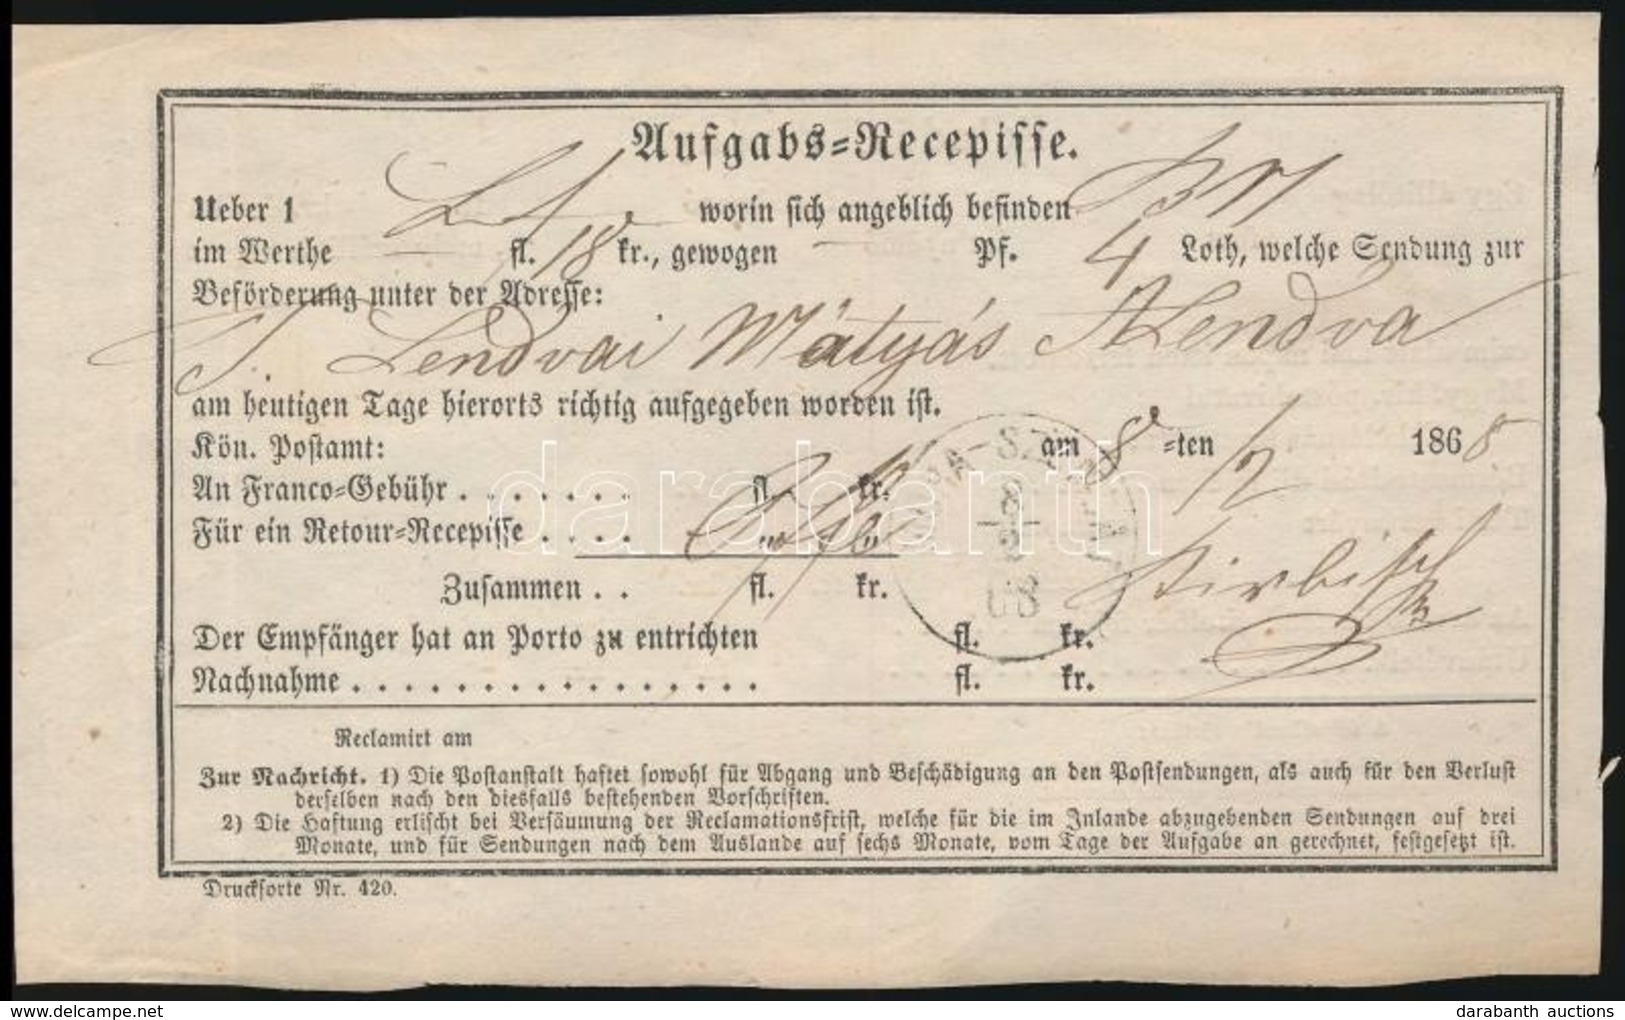 Aufgabs-Recepisse.
Ueber 1 worin sich angeblich befinden
im Werthe — fl. 18 kr., gewogen — Pf. 4 Loth, welche Sendung zur
Beförderung unter der Adresse:
Lendvai Mátyás ALendva
am heutigen Tage hierorts richtig aufgegeben worden ist.
Kön. Postamt: am 8 -ten /2 1868
An Franco-Gebühr . . . . . . . fl. kr.
Für ein Retour-Recepisse . . . . " "
Zusammen . . fl. kr.
Der Empfänger hat an Porto zu entrichten fl. kr.
Nachnahme . . . . . . . . . . . . . . . . fl. kr.
Reclamirt am
Zur Nachricht. 1) Die Postanstalt haftet sowohl für Abgang und Beschädigung an den Postsendungen, als auch für den Verlust
derselben nach den diesfalls bestehenden Vorschriften.
2) Die Haftung erlischt bei Versäumung der Reclamationsfrist, welche für die im Inlande abzugebenden Sendungen auf drei
Monate, und für Sendungen nach dem Auslande auf sechs Monate, vom Tage der Aufgabe an gerechnet, festgesetzt ist.
Drucksorte Nr. 420.
darabanth
www.delcampe.net
darabanth auctions